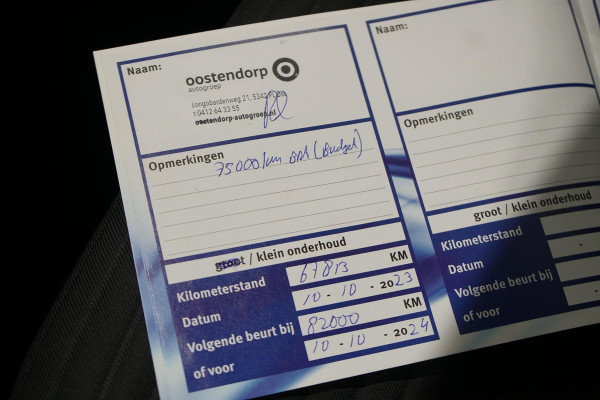 Naam:
oostendorp
autogroep
Longobardenweg 21, 5342 PL Oss
t.0412 64 33 55
oostendorp-autogroep.nl
Opmerkingen
75000/km
(Budget)
groot / klein onderhoud
Kilometerstand 67813 KM
Datum 10 - 10 - 2023
Volgende beurt bij 82000 KM
of voor 10 - 10 - 2024
Naam:
Opmerkingen
groot / klein onderhoud
Kilometerstand
Datum -
Volgende beurt bij
of voor -